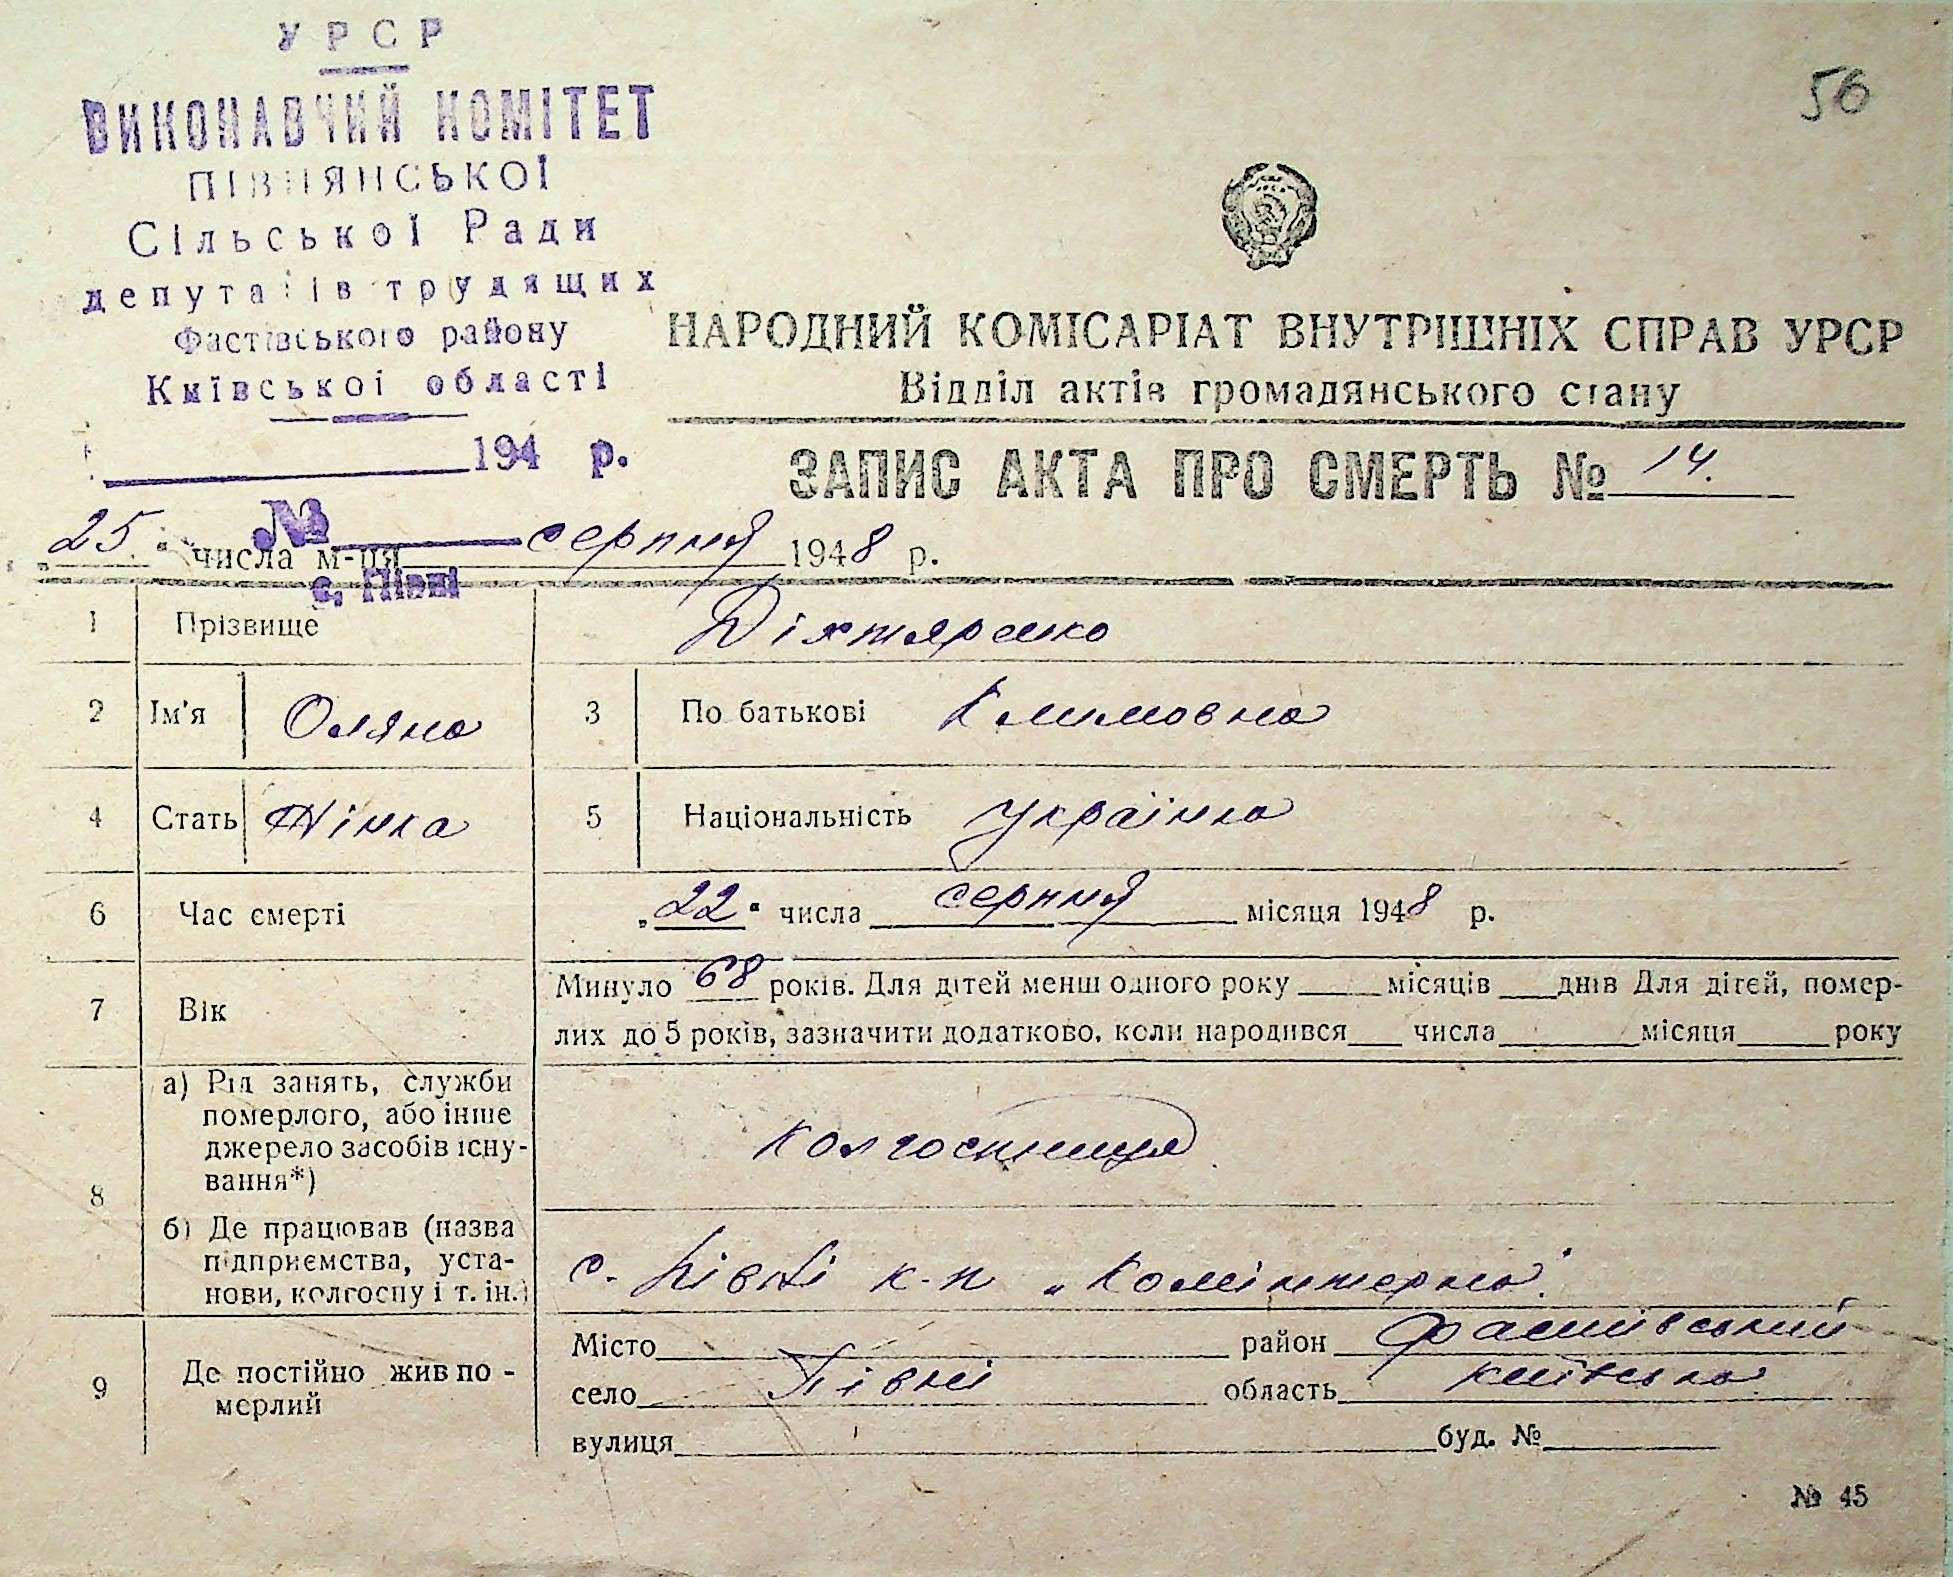 56
УРСР
ВИКОНАВЧИЙ КОМІТЕТ
ПІВНЯНСЬКОЇ
Сільської Ради
депутатів трудящих
Фастівського району
Київської області
194 р.
№
с. Півні
НАРОДНИЙ КОМІСАРІАТ ВНУТРІШНІХ СПРАВ УРСР
Відділ актів громадянського стану
ЗАПИС АКТА ПРО СМЕРТЬ № 14.
„25“ числа м-ця серпня 1948 р.
1 Прізвище Діхтяренко
2 Ім'я Оляна 3 По батькові Климовна
4 Стать Жінка 5 Національність Українка
6 Час смерті „22“ числа серпня місяця 1948 р.
7 Вік Минуло 68 років. Для дітей менш одного року місяців днів Для дітей, помер-
лих до 5 років, зазначити додатково, коли народився числа місяця року
8 а) Рід занять, служби
померлого, або інше
джерело засобів існу-
вання*)
колгоспниця
б) Де працював (назва
підприємства, уста-
нови, колгоспу і т. ін.)
с. Півні к-п „Комінтерна“.
9 Де постійно жив по-
мерлий
Місто район Фастівський
село Півні область Київська
вулиця буд. №
№ 45